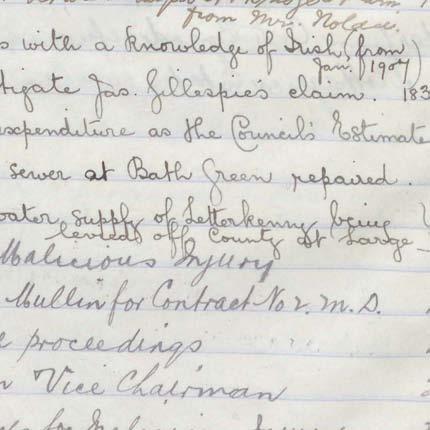 from Mrs.
s with a knowledge of Irish (from
Jan, 1907)
tigate Jas. Gillespie's claim. 183
expenditure as the Council's Estimate
sewer at Bath Green repaired.
water supply of Letterkenny being
levied off County at Large
Malicious Injury
Mullin for Contract No 2. M.D.
e proceedings
n Vice Chairman